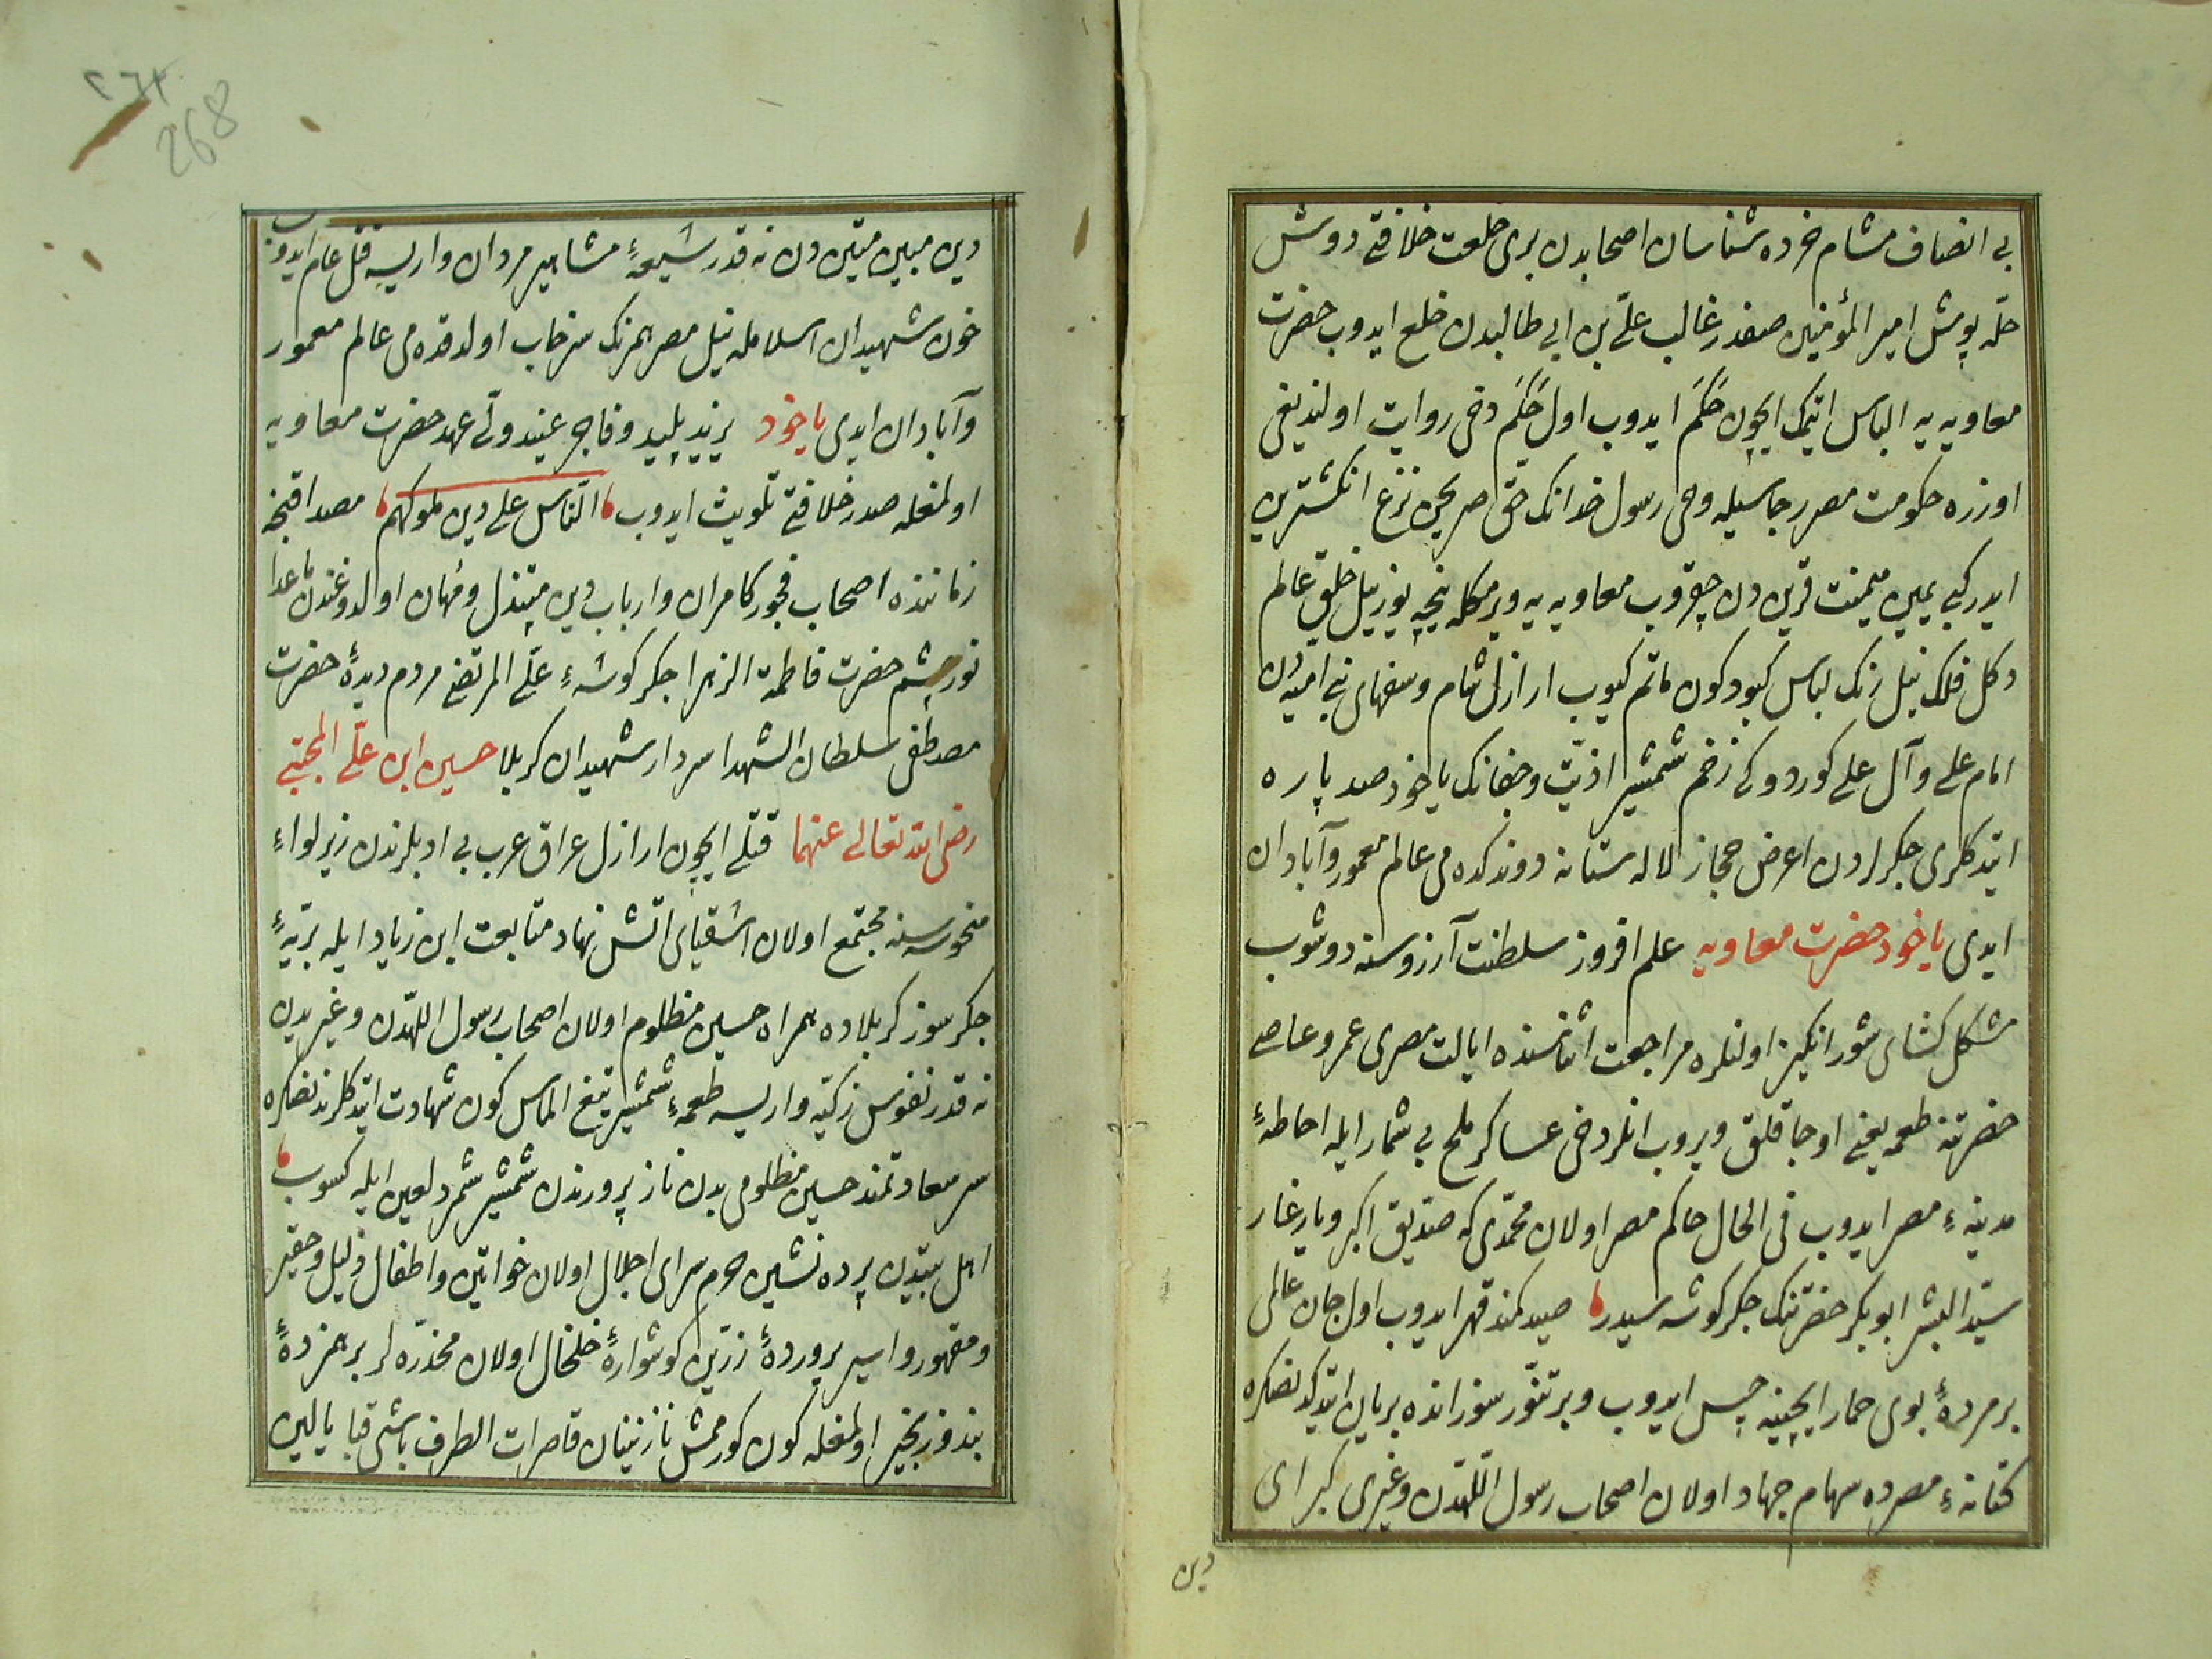 بی انصاف مشام خرده شناسان اصحابدن بری خلعت خلافتی دوش
حلّه پوش امیر المؤمنین صفدر غالب علّی بن ابی طالبدن خلع ایدوب حضرت
معاویه یه الباس اتمک ایچون حَکَم ایدوب اول حَکَم دخی روایت اولندیغی
اوزره حکومت مصر رجاسیله وحی رسول خدانک حقّ صریحین نزع انکشترین
ایدر کبی یمین میمنت قرین دن چقروب معاویه یه ویرمکله نیجه یوز بیل خلق عالم
دکل فلک نیل رنک لباس کبود کون ماتم کیوب اراذل شام وسفهای بنی امیه دن
امام علی وآل علی کوردوکی زخم شمشیر اذیّت وجفانک یاخود صد پاره
ایتدکلری جکرلردن ارض حجاز لاله ستانه دوندکده می عالم معمور وآبادان
ایدی یاخود حضرت معاویه علم افروز سلطنت آرزوسنه دوشوب
مشکل کشای شور انکیز اولنلره مراجعت اثناسنده ایالت مصری عمرو عاصی
حضرتنه طعمه یعنی اوجاقلق ویروب انلر دخی عساکر ملح بی شمار ایله احاطهٔ
مدینهٔ مصر ایدوب فی الحال حاکم مصر اولان محمّدی که صدّیق اکبر ویار غار
سیّد البشر ابو بکر حضرتنک جکر کوشه سیدر صید کمند قهر ایدوب اول جان عالمی
بر مردهٔ بوی حمار ایچینه حبس ایدوب وبر تنّور سوزانده بریان ایتدکدنصکره
کنانهٔ مصرده سهام جهاد اولان اصحاب رسول اللّهدن وغیری کبرای
دین
٢٦٤
268
دین مبین متین دن نه قدر شیعهٔ مشاهیر مردان واریسه قتل عام ایدوب
خون شهیدان اسلامله نیل مصر همرنک سرخاب اولدقده می عالم معمور
وآبادان ایدی یاخود یزید پلید وفاجر عنید ولّی عهد حضرت معاویه
اولمغله صدر خلافتی تلویث ایدوب النّاس علی دین ملوکهم مصداقنجه
زماننده اصحاب فجور کامران وارباب دین مبتذل ومُهان اوالدوغندن ماعدا
نور چشم حضرت فاطمة الزهرا جکر کوشهٔ علّی المرتضی مردم دیدهٔ حضرت
مصطفی سلطان الشهدا سردار شهیدان کربلا حسین ابن علّی المجتبی
رضی الله تعالی عنهما قتلی ایچون اراذل عراق عرب بی ادبلرندن زیر لواءِ
منحوسسنه مجتمع اولان اشقیای اتش نهاد متابعت ابن زیاد ایله برّیهٔ
جکر سوز کربلاده همراه حسین مظلوم اولان اصحاب رسول اللّهدن وغیریدن
نه قدر نفوس زکیّه واریسه طعمهٔ شمشیر تیغ الماس کون شهادت ایتدکلرندنصکره
سر سعادتمند حسین مظلومی بدن ناز پرورندن شمشیر شمر لعین ایله کسوب
اهل بیتدن پرده نشین حرم سرای اجلال اولان خواتین واطفال ذلیل وحقیر
ومقهور واسیر پروردهٔ زرّین کوشوارهٔ خلخال اولان مخدّره لر بر همزدهٔ
بند وزنجیر اولمغله کون کورممش نازنینان قاصرات الطرف باشی قبا یالین